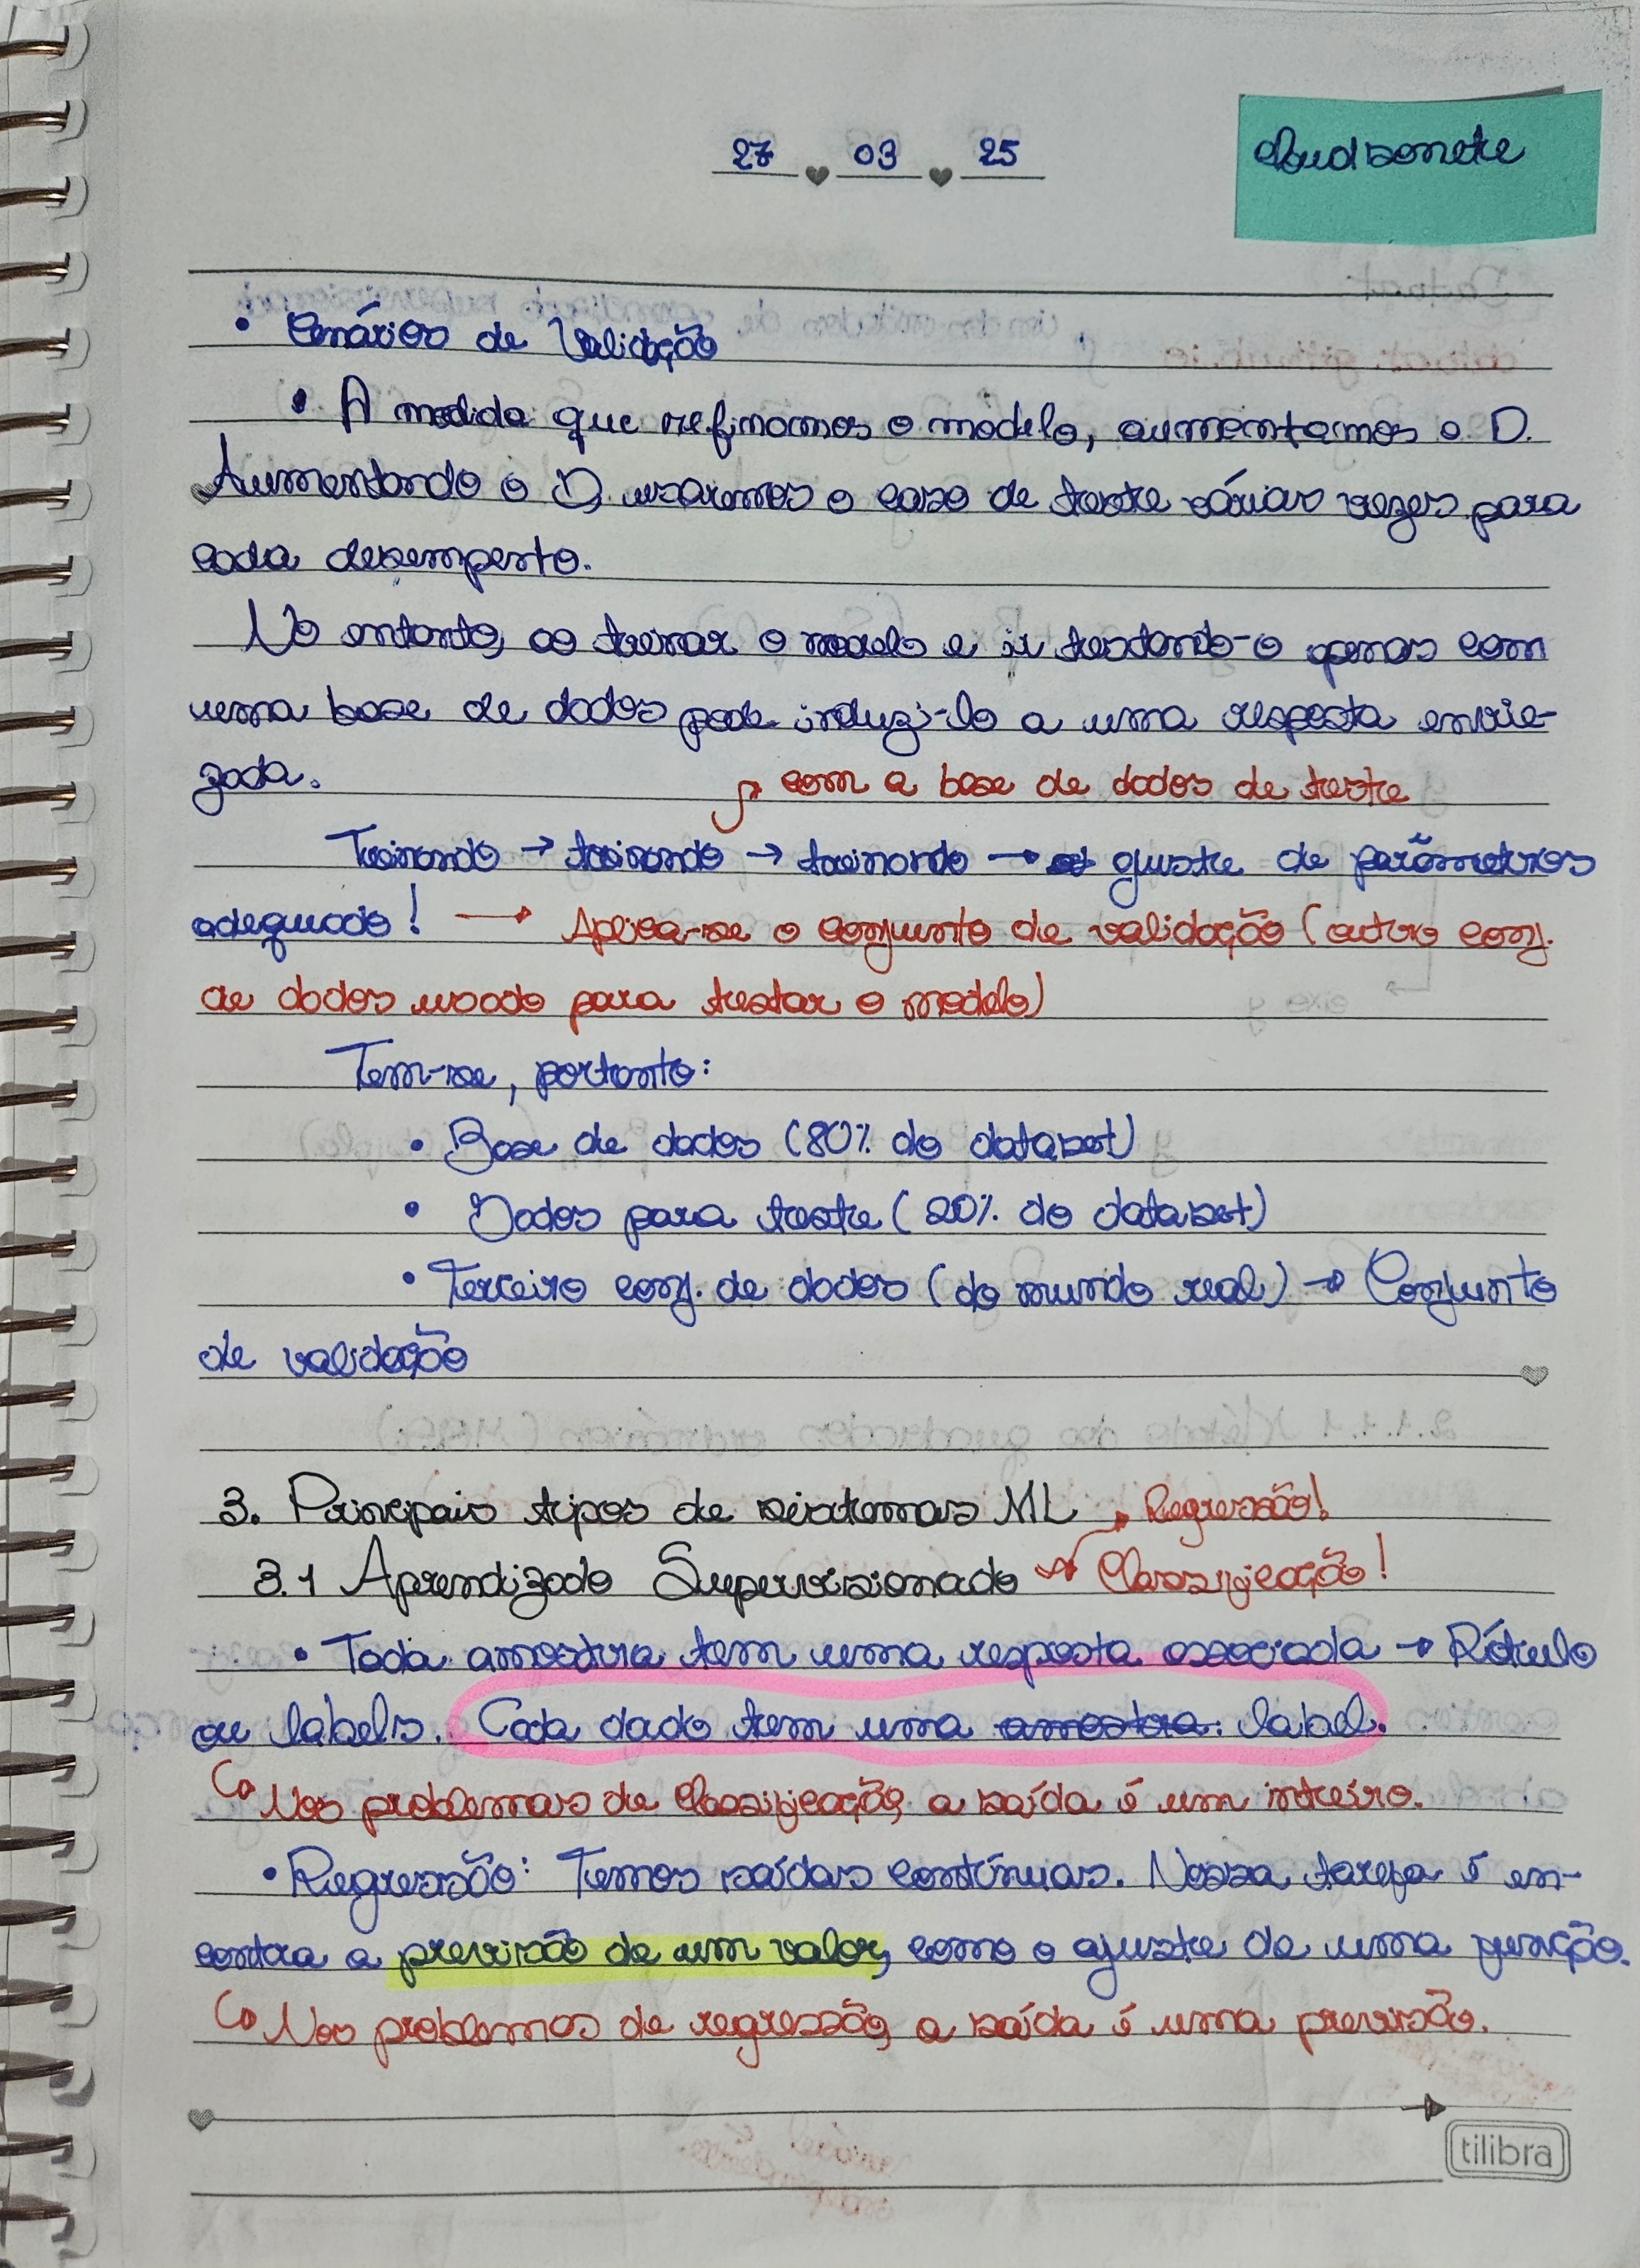 27 03 25
• Cenários de Validação
• A medida que refinamos o modelo, aumentamos o D.
Aumentando o D, usaremos o caso de teste várias vezes para
cada desemperto.
No entanto, ao treinar o modelo e ir testando-o apenas com
uma base de dados pode induzi-lo a uma resposta envie-
zada.
com a base de dados de teste
Treinando → treinando → treinando → ajuste de parâmetros
adequado! → Aplica-se o conjunto de validação (outro conj.
de dados usado para testar o modelo)
Tem-se, portanto:
• Base de dados (80% do dataset)
• Dados para teste (20% do dataset)
• Terceiro conj. de dados (do mundo real) → Conjunto
de validação
3. Principais tipos de sistemas ML → Regressão!
3.1 Aprendizado Supervisionado → Classificação!
• Toda amostra tem uma resposta associada → Rótulo
ou labels. Cada dado tem uma amostra. label.
↳ Nos problemas de Classificação, a saída é um inteiro.
• Regressão: Temos saídas contínuas. Nossa tarefa é en-
contra a previsão de um valor, como o ajuste de uma função.
↳ Nos problemas de regressão, a saída é uma previsão.
tilibra